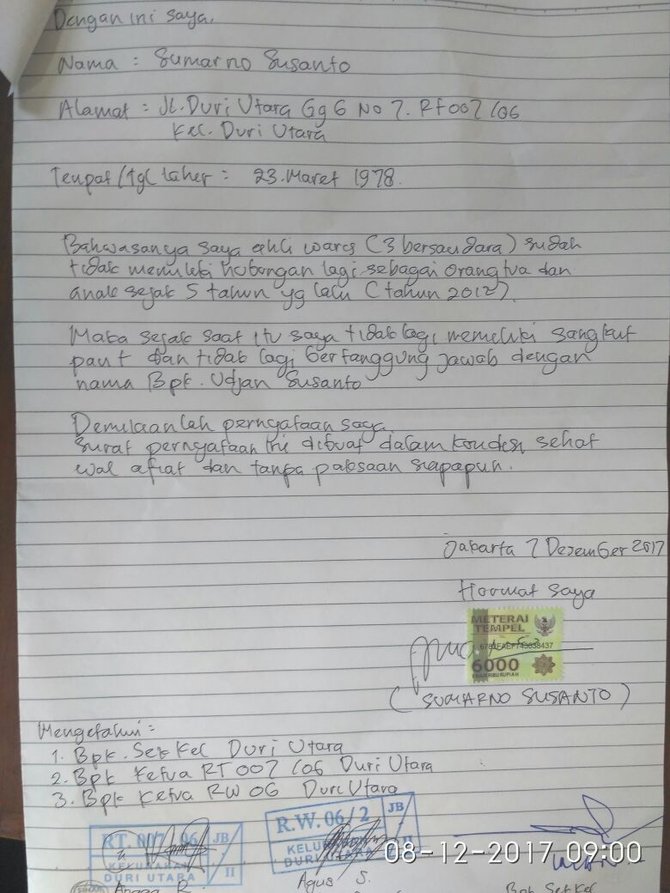 Dengan ini saya,
Nama : Sumarno Susanto
Alamat : Jl. Duri Utara Gg 6 No 7. RT007/06
Kel. Duri Utara
Tempat/tgl laher : 23. Maret 1978.
Bahwasanya saya ahli waris (3 bersaudara) sudah
tidak memiliki hubungan lagi sebagai orangtua dan
anak sejak 5 tahun yg lalu (tahun 2012).
Maka sejak saat itu saya tidak lagi memeliki sangkut
paut dan tidak lagi bertanggung jawab dengan
nama Bpk. Udjan Susanto
Demikaanlah pernyataan saya.
Surat pernyataan ini dibuat dalam kondisi sehat
wal afiat dan tanpa paksaan siapapun.
Jakarta 7 Desember 2017
Hormat saya
METERAI
TEMPEL
6000
(SUMARNO SUSANTO)
Mengetahui :
1. Bpk. Sek Kel Duri Utara
2. Bpk Ketua RT 007/06 Duri Utara
3. Bpk Ketua RW 06 Duri Utara
RT. 007 / 06 JB
DURI UTARA II
R.W. 06 / 2 JB
DURI UTARA II
08-12-2017 09:00
Angga B.
Agus S.
Bpk Sek Kel